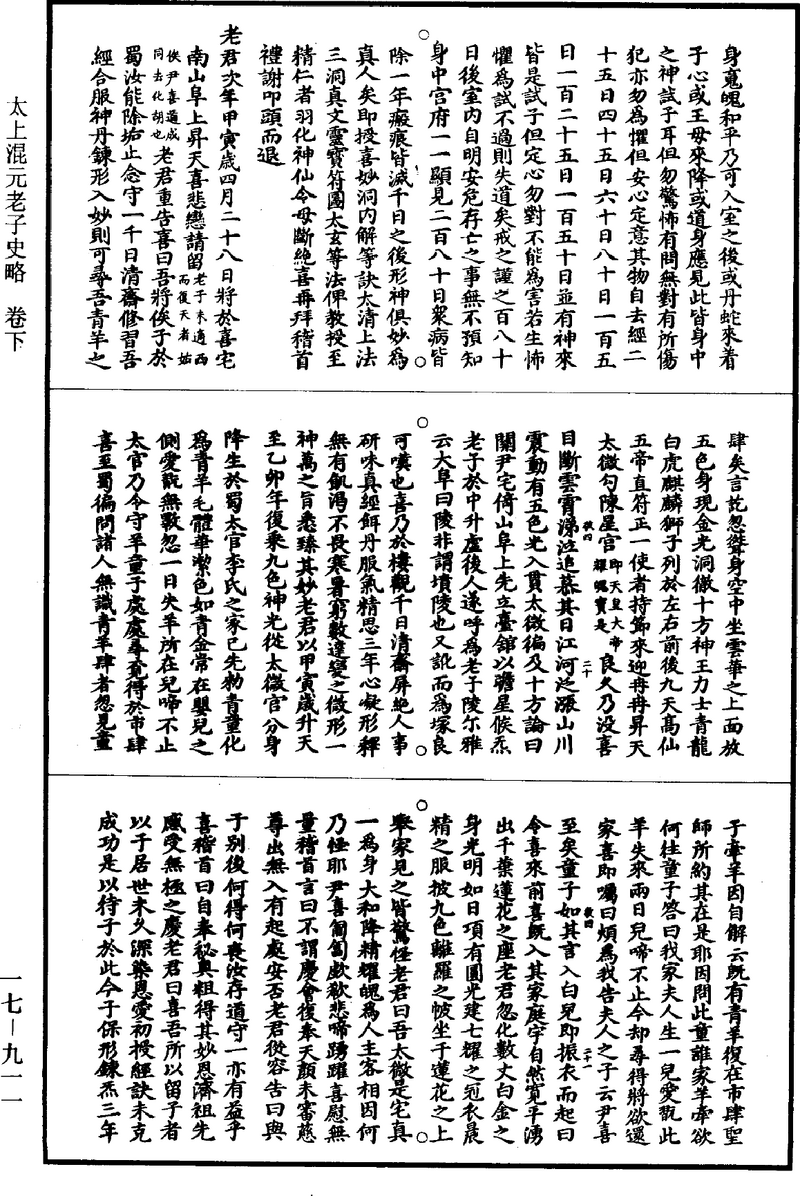 太上混元老子史略　卷下
一七－九一一
身寬魄和平乃可入室之後或丹蛇來着
子心或王母來降或道身應見此皆身中
之神試子耳但勿驚怖有問無對有所傷
犯亦勿為懼但安心定意其物自去經二
十五日四十五日六十日八十日一百五
日一百二十五日一百五十日並有神來
皆是試子但定心勿對不能為害若生怖
懼為試不過則失道矣戒之謹之百八十
日後室內自明安危存亡之事無不預知
身中宮府一一顯見二百八十日衆病皆
除一年瘢痕皆滅千日之後形神俱妙為
真人矣即授喜妙洞內解等訣太清上法
三洞真文靈寶符圖太玄等法俾教授至
精仁者羽化神仙令毋斷絕喜再拜稽首
禮謝叩頭而退
老君次年甲寅歲四月二十八日將於喜宅
南山阜上昇天喜悲戀請留老子未適西而復天者始
俟尹喜道成同去化胡也老君重告喜曰吾將俟子於
蜀汝能除垢止念守一千日清齋修習吾
經合服神丹鍊形入妙則可尋吾青羊之
肆矣言訖忽聳身空中坐雲華之上面放
五色身現金光洞徹十方神王力士青龍
白虎麒麟獅子列於左右前後九天高仙
五帝直符正一使者持節來迎冉冉昇天
太微勾陳星宮即天皇大帝耀魄寶是良久乃没喜
目斷雲霄涕泣追慕其日江河泛漲山川
震動有五色光入貫太微徧及十方論曰
關尹宅倚山阜上先立臺舘以瞻星候炁
老子於中升虛後人遂呼為老子陵尔雅
云大阜曰陵非謂墳陵也又訛而為塚良
可嘆也喜乃於樓觀千日清齋屏絕人事
研味真經餌丹服氣精思三年心凝形釋
無有飢渴不畏寒暑窮數達變之微形一
神萬之旨悉臻其妙老君以甲寅歲升天
至乙卯年復乘九色神光從太微官分身
降生於蜀太官李氏之家已先勑青童化
為青羊毛體華潔色如青金常在嬰兒之
側愛翫無斁忽一日失羊所在兒啼不止
太官乃令守羊童子處處尋覔得於市肆
喜至蜀徧問諸人無識青羊肆者忽見童
子牽羊因自解云既有青羊復在市肆聖
師所約其在是耶因問此童誰家羊牽欲
何往童子答曰我家夫人生一兒愛翫此
羊失來兩日兒啼不止今却尋得將欲還
家喜即囑曰煩為我告夫人之子云尹喜
至矣童子如其言入白兒即振衣而起曰
令喜來前喜既入其家庭宇自然寬平湧
出千葉蓮花之座老君忽化數丈白金之
身光明如日項有圓光建七耀之冠衣晨
精之服披九色離羅之帔坐于蓮花之上
舉家見之皆驚怪老君曰吾太微是宅真
一為身太和降精耀魄為人主客相因何
乃怪耶尹喜匍匐歔欷悲啼踴躍喜慰無
量稽首言曰不謂慶會復奉天顏未審慈
尊出無入有起處安否老君從容告曰與
子別後何得何喪汝存道守一亦有益乎
喜稽首曰自奉秘奧粗得其妙恩濟祖先
感受無極之慶老君曰喜吾所以留子者
以子居世未久深染恩愛初授經訣未克
成功是以待子於此今子保形鍊炁三年